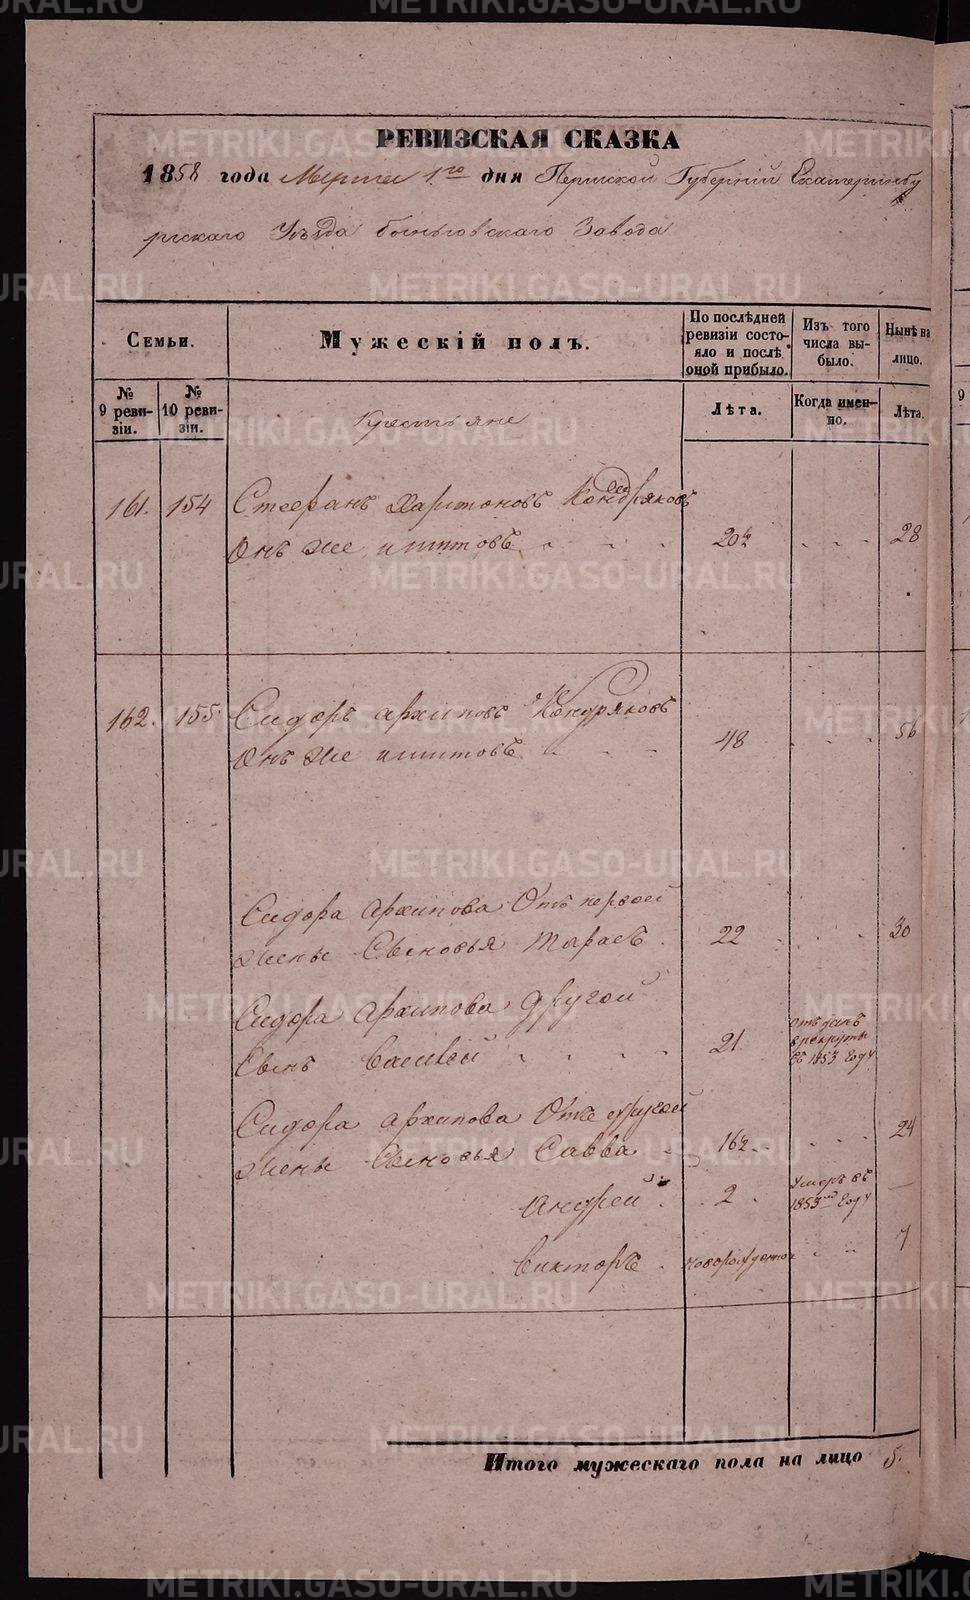 РЕВИЗСКАЯ СКАЗКА
1858 года Марта 1го дня Пермской Губерній Екатеринбу
ргскаго Уѣзда Быньговскаго Завода
Семьи.
Мужескій полъ.
По послѣдней ревизіи состояло и послѣ оной прибыло.
Изъ того числа выбыло.
Нынѣ на лицо.
№ 9 ревизіи.
№ 10 ревизіи.
Крестьяне
Лѣта.
Когда именно.
Лѣта.
161. 154 Стефанъ Харитоновъ Кондряковъ
Онъ же шитовъ 20½ 28
162. 155. Сидоръ Архиповъ Кондряковъ
Онъ же шитовъ 48 56
Сидора Архипова Отъ первой
жены Сыновья Тарасъ 22 30
Сидора Архипова другой
Сынъ Василей 21 Отъданъ в рекруты Съ 1853 Году
Сидора Архипова Отъ другой
жены Сыновья Савва 16½ 24
Андрей 2 Умеръ въ 1853мъ Году
Викторъ новорожденной 7
Итого мужескаго пола на лицо 5.
METRIKI.GASO-URAL.RU